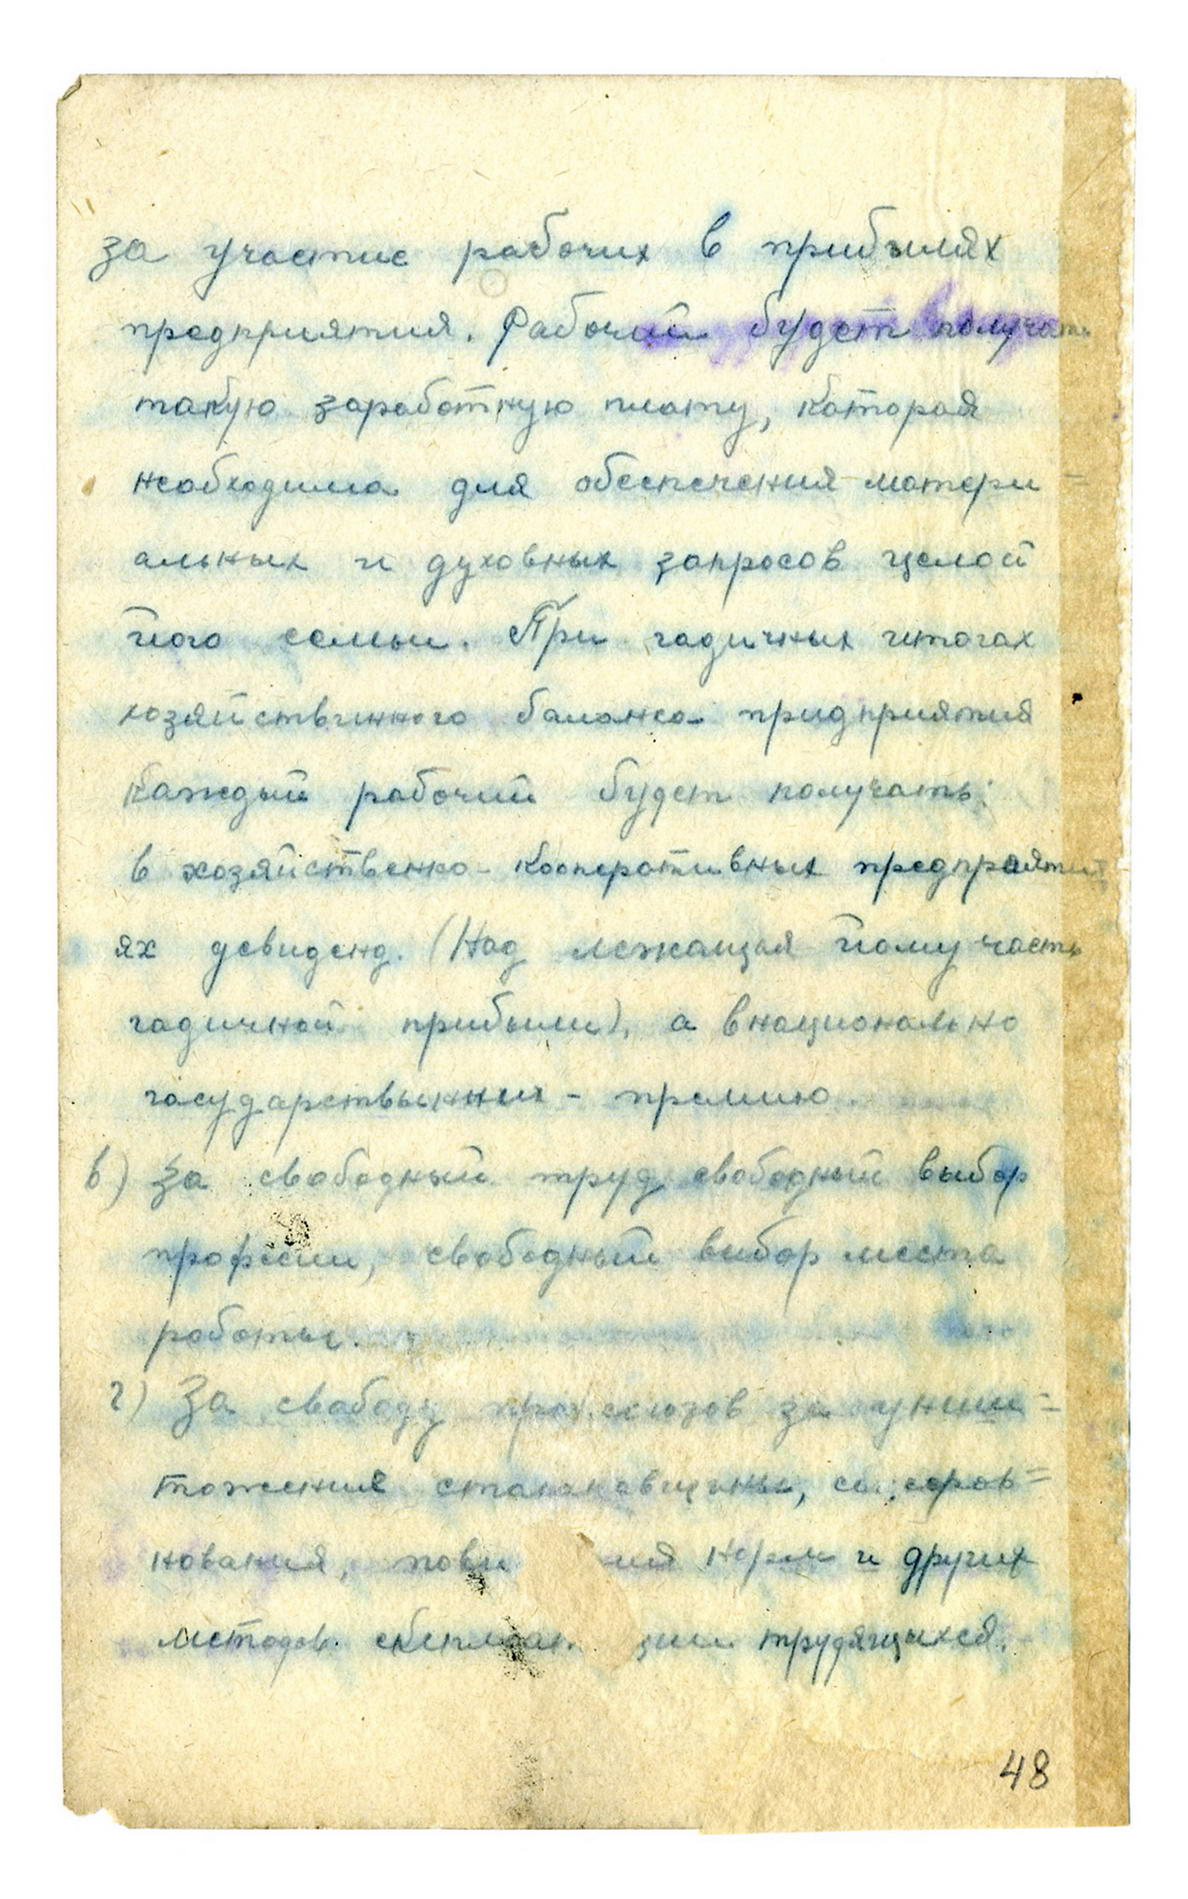 за участие рабочих в прибылях
предприятия. Рабочий будет получать
такую заработную плату, которая
необходима для обеспечения матери-
альных и духовных запросов целой
його семьи. При годичных итогах
хозяйствинного баланса придприятия
каждый рабочий будет получать:
в хозяйственно-кооперативных предприяти
ях девиденд. (Над лежащая йому часть
годичной прибыли), а внационально
государствынных - премию.
в) за свободный труд свободный выбор
професии, свободный выбор места
работы.
г) За свободу профсоюзов за уничи=
тожения стахановщины, соцсорев=
нования, повы ния норм и других
методов. експлоат ции трудящихся.
48